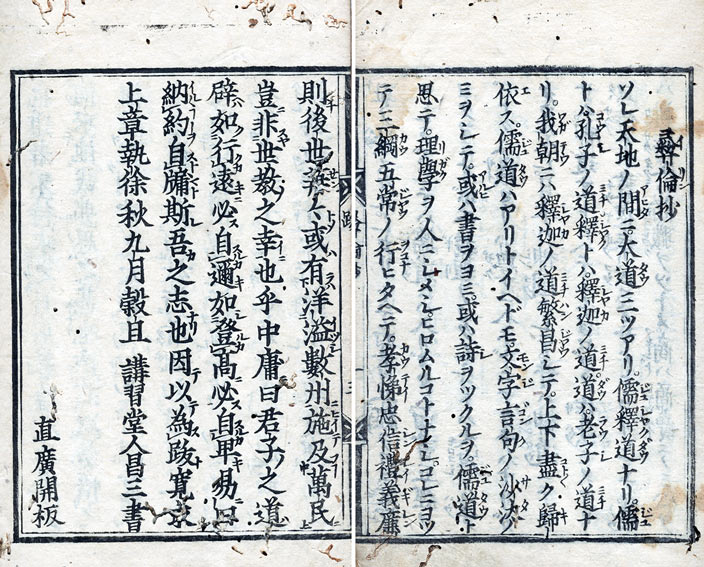 彝倫抄
ソレ天地ノ間ニ大道三ツアリ儒釋道ナリ儒
トハ孔子ノ道釋トハ釋迦ノ道道ハ老子ノ道ナ
リ我朝ニハ釋迦ノ道繁昌シテ上下盡ク歸
依ス儒道ハアリトイヘドモ文字言句ノ沙汰ノ
ミヲシテ或ハ書ヲヨミ或ハ詩ヲツクルヲ儒道ト
思テ理學ヲ人ニシメシヒロムルコトナシコレニヨツ
テ三綱五常ノ行ヒタヘテ孝悌忠信禮義廉
則後世 或有洋溢數州施及萬民
豈非世教之幸也乎中庸曰君子之道
辟如行遠必自邇如登高必自卑易曰
納約自牖斯吾之志也因以為跋寛永
上章執徐秋九月穀旦 講習堂人昌三書
直廣開板